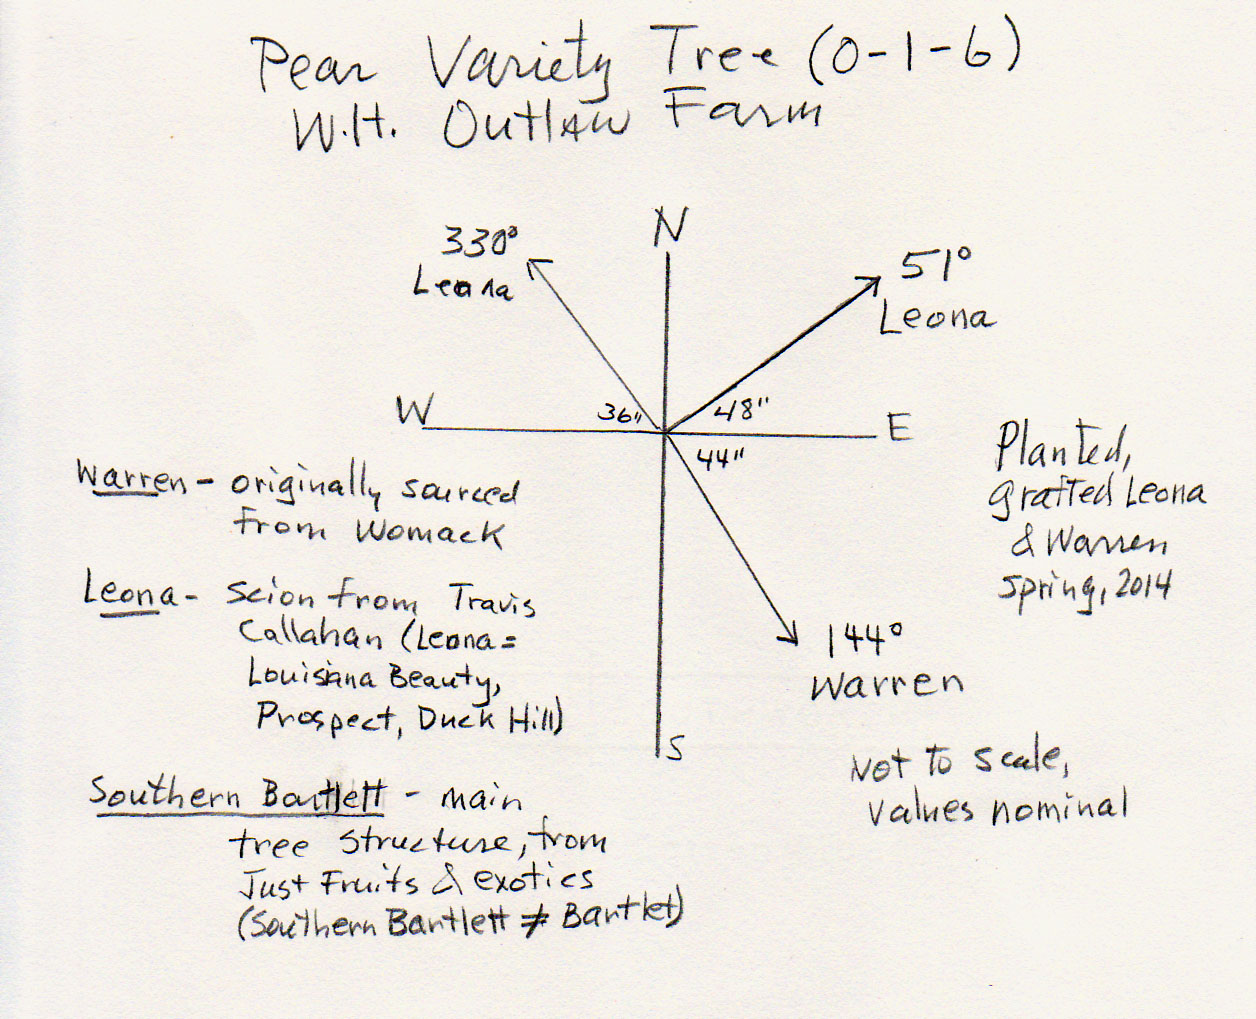 Pear Variety Tree (0-1-6)
W.H. Outlaw Farm
N
330°
Leona
51°
Leona
W
36"
48"
E
44"
Planted,
grafted Leona
& Warren
spring, 2014
Warren - originally sourced
from Womack
Leona - Scion from Travis
Callahan (Leona =
Louisiana Beauty,
Prospect, Duck Hill)
144°
Warren
S
Not to scale,
values nominal
Southern Bartlett - main
tree structure, from
Just Fruits & exotics
(Southern Bartlett ≠ Bartlet)